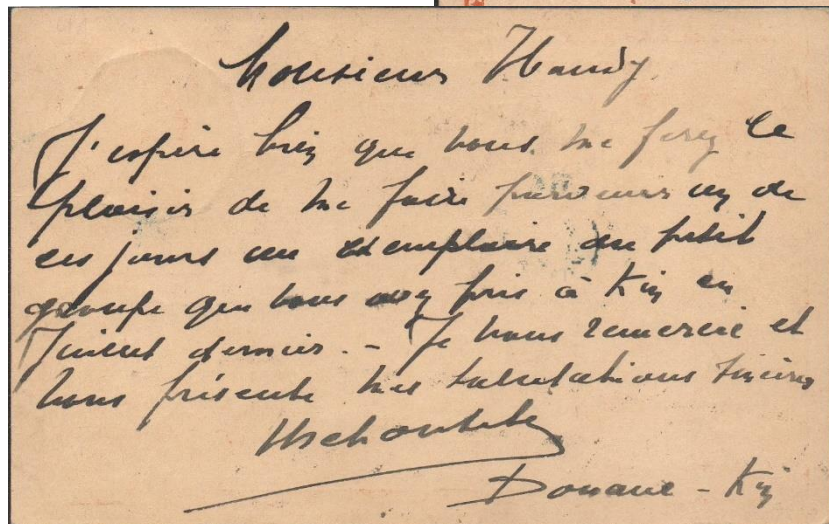 Monsieur Handy
J'espère bien que vous me ferez le
plaisir de me faire parvenir un de
ces jours un exemplaire du petit
groupe que vous avez pris à Kin en
Juillet dernier. - Je vous remercie et
vous présente mes salutations sincères
Douane - Kin